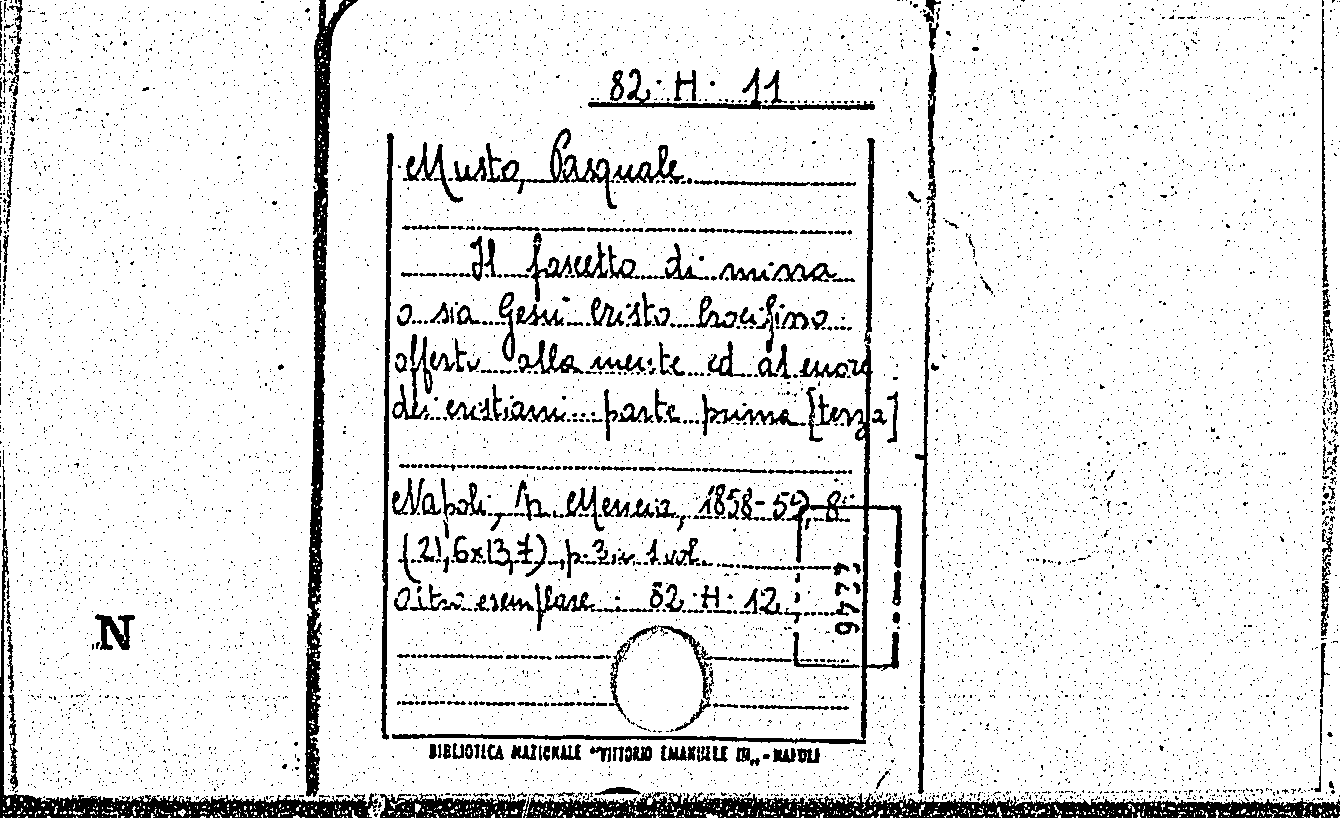 82. H. 11
Musto, Pasquale.
Il fascetto di mirra
o sia Gesù Cristo Crocifisso
offerto alla mente ed al cuore
dei cristiani... parte prima [terza]
Napoli, N. Mencia, 1858-59, 8°
(21,6x13,7), p. 3 in 1 vol.
Altro esemplare. 82. H. 12
N
BIBLIOTECA NAZIONALE "VITTORIO EMANUELE III„ - NAPOLI